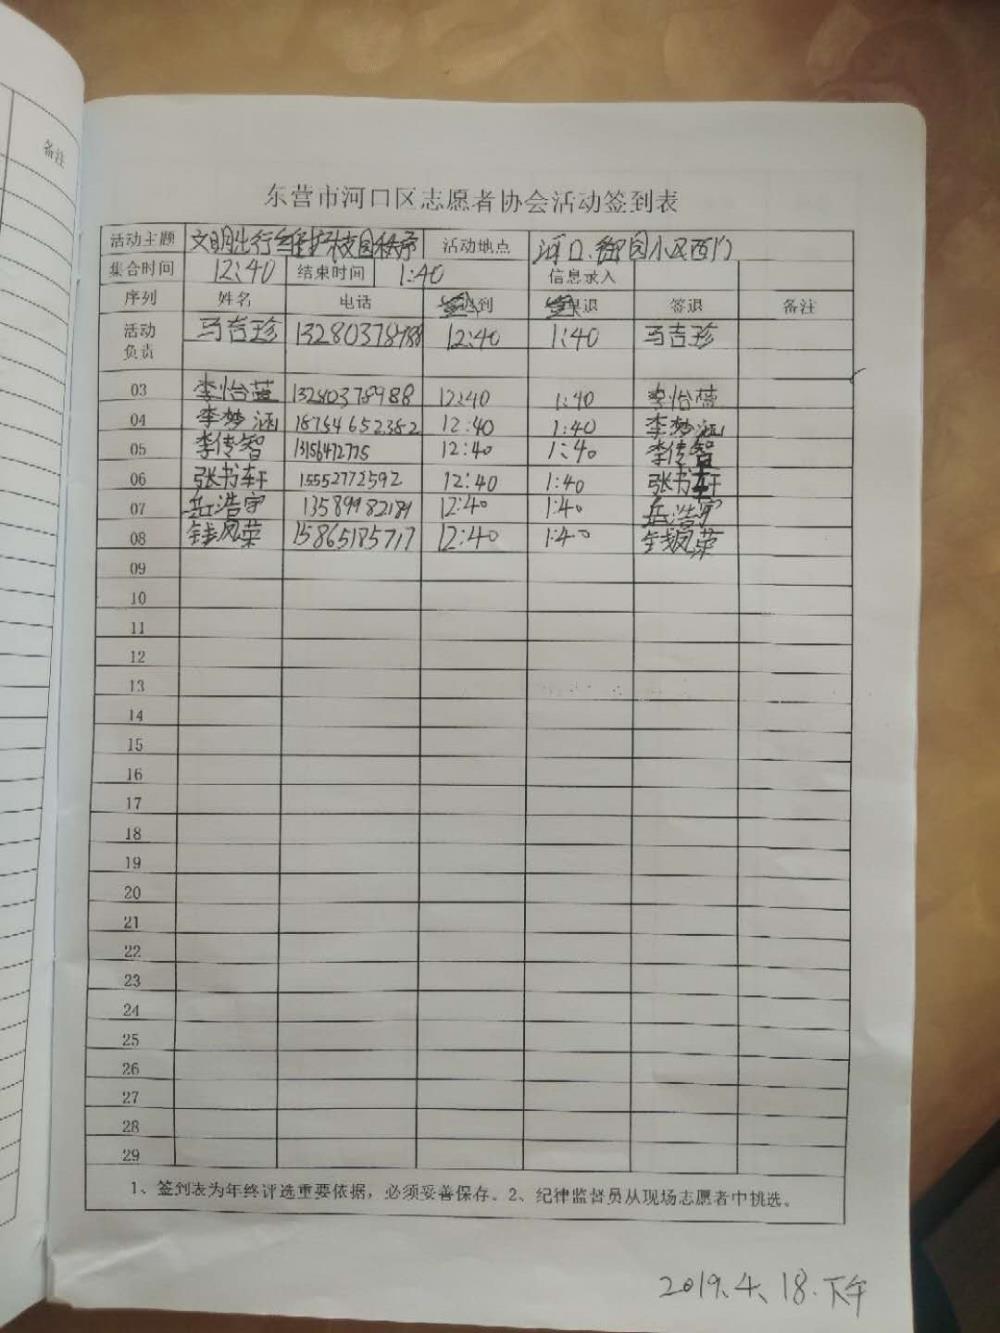 备注
东营市河口区志愿者协会活动签到表
活动主题 文明出行维护校园秩序 活动地点 河口御园小区西门
集合时间 12:40 结束时间 1:40 信息录入
序列 姓名 电话 到 退 签退 备注
活动负责 马吉珍 13280378988 12:40 1:40 马吉珍
03 李怡蓝 13280378988 12:40 1:40 李怡蓝
04 李梦涵 18754652382 12:40 1:40 李梦涵
05 李传智 13156472775 12:40 1:40 李传智
06 张书轩 15552772592 12:40 1:40 张书轩
07 岳浩宇 12:40 1:40 岳浩宇
08 钱凤荣 15865185717 12:40 1:40 钱凤荣
09
10
11
12
13
14
15
16
17
18
19
20
21
22
23
24
25
26
27
28
29
1、签到表为年终评选重要依据，必须妥善保存。2、纪律监督员从现场志愿者中挑选。
2019.4.18.下午